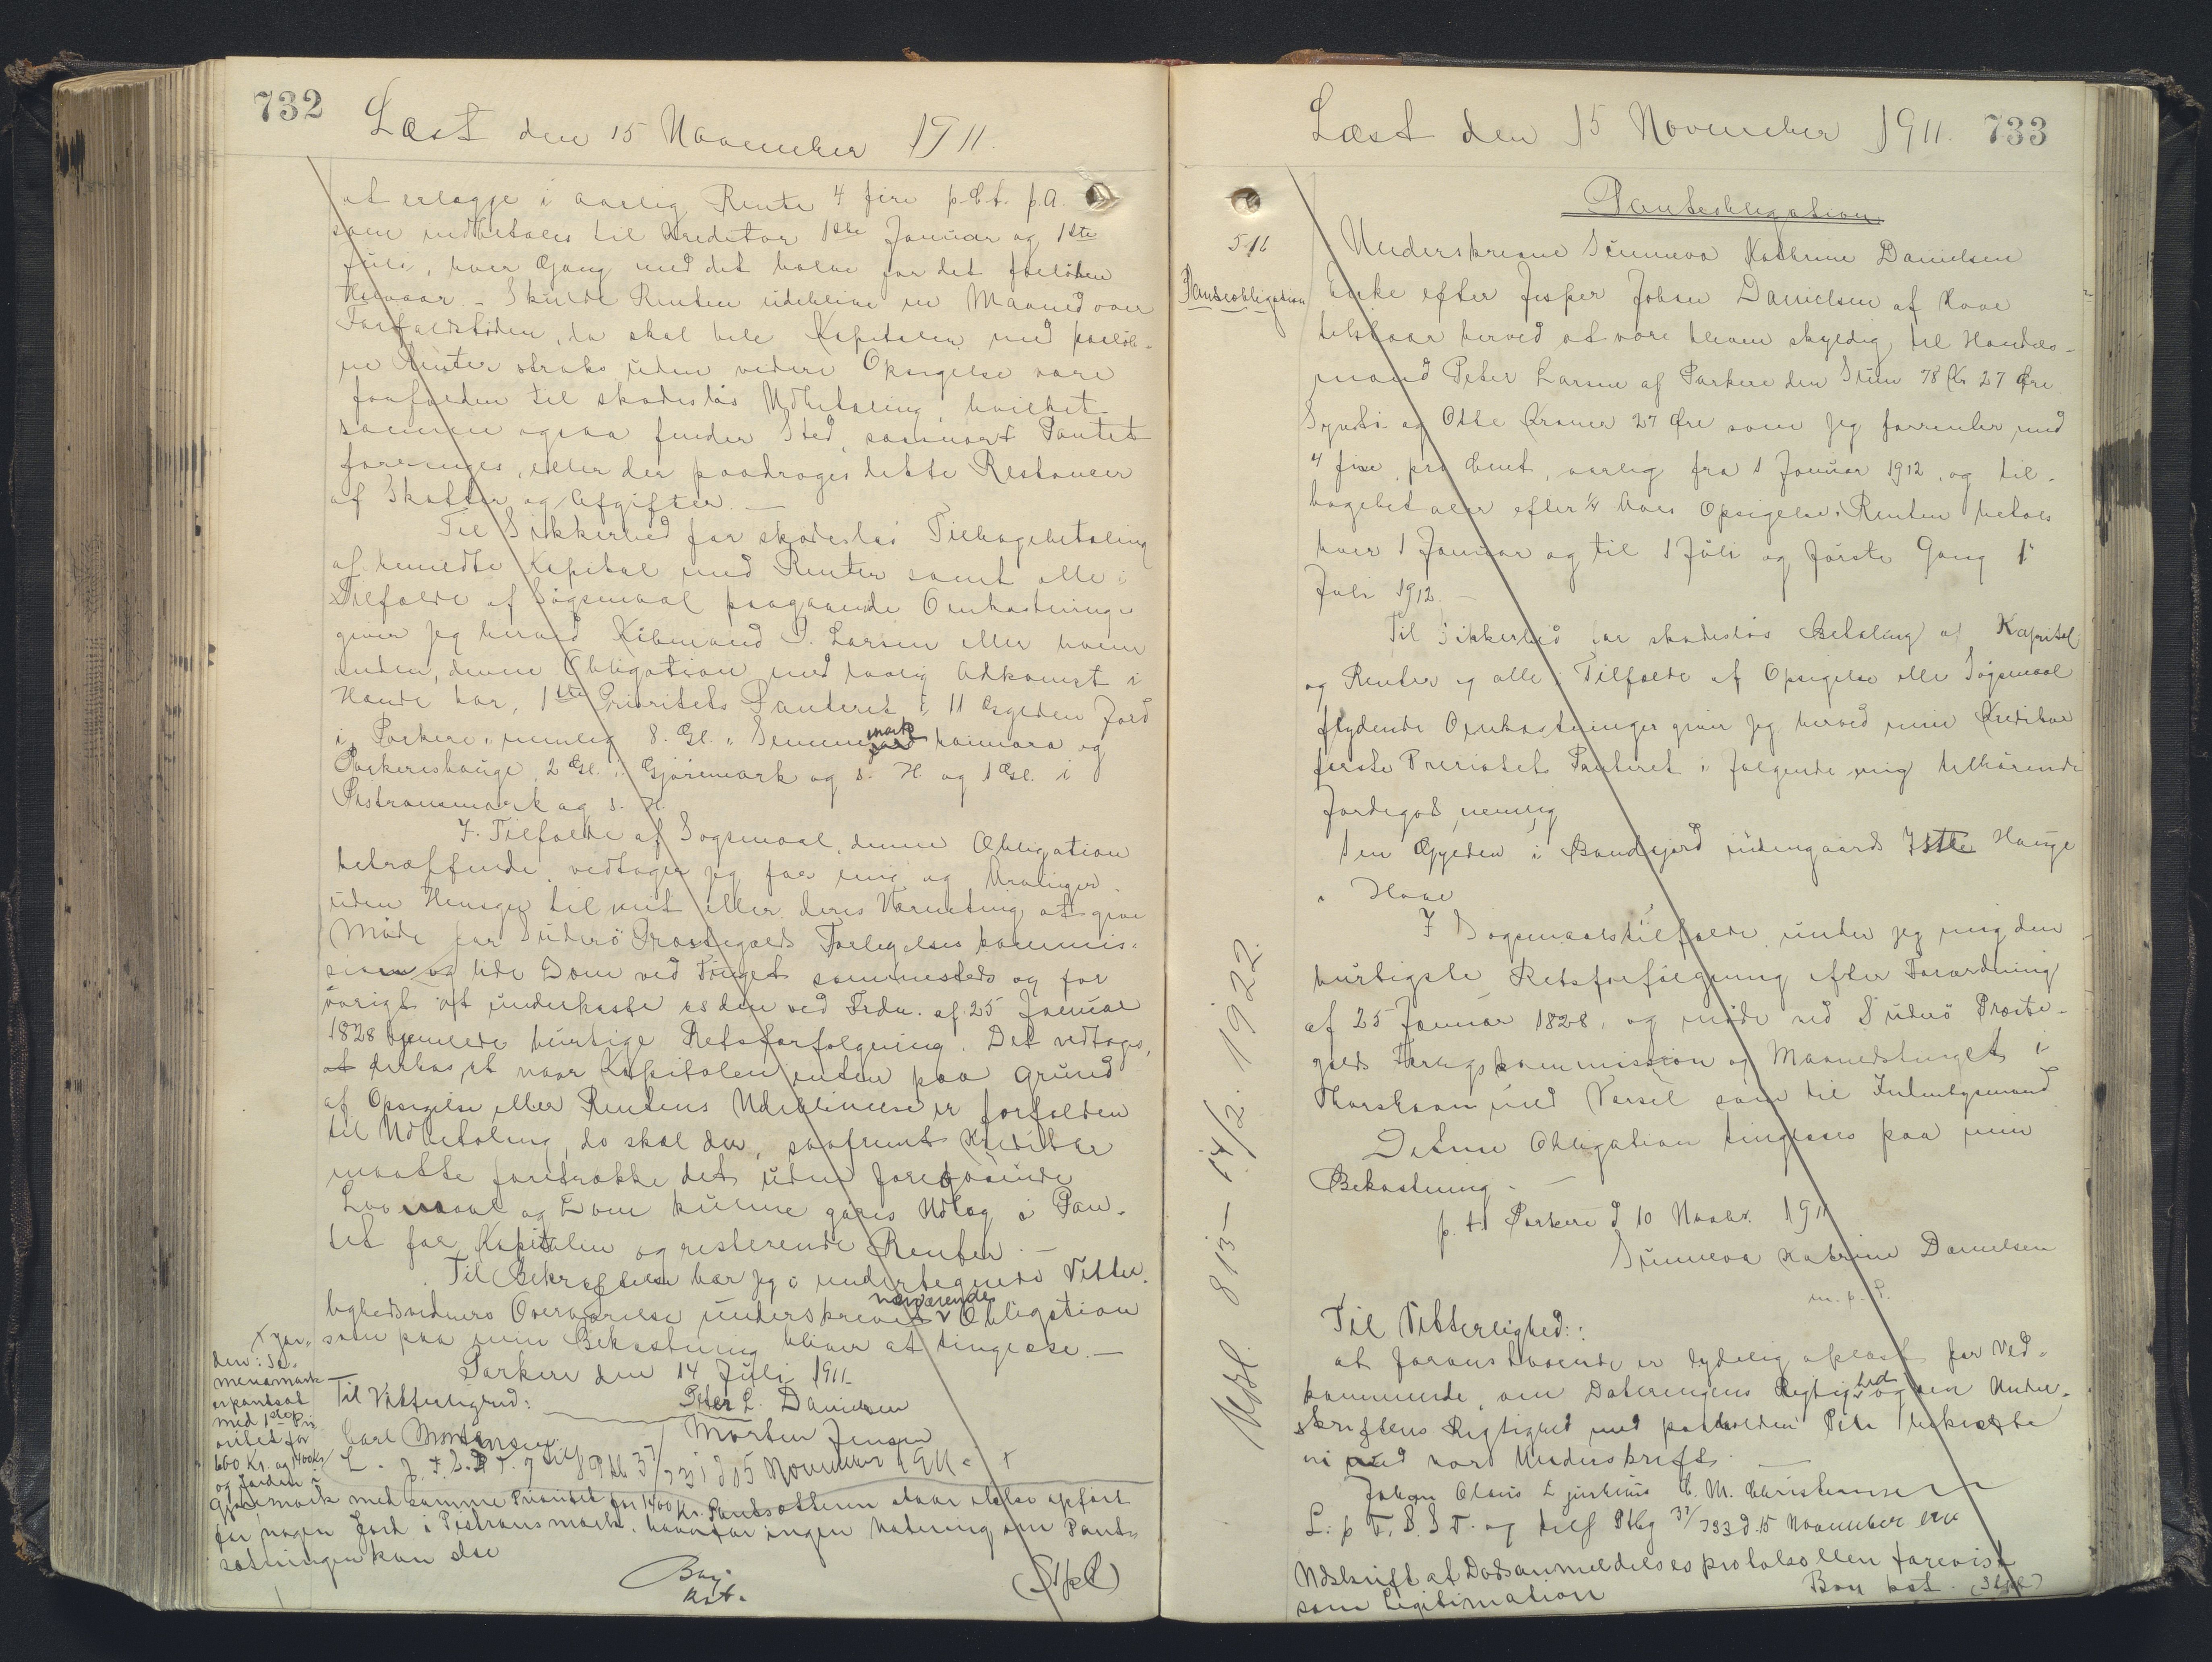 732
Læst den 15 November 1911.
at erlægge i aarlig Rente 4 fire p.Ct. p.A.
som indbetales til Kreditor 1ste Januar og 1ste
Juli, hver Gang med det halve for det forløbne
Halvaar. – Skulde Renten udeblive en Maaned over
Forfaldstiden, da skal hele Kapitalen med påløb-
ne Renter straks uden videre Opsigelse være
forfalden til skadesløs Udbetaling, hvilket
samme ogsaa finder Sted, saasnart Pantet
forringes, eller der paadrages dette Restancer
af Skatter og Afgifter. –
Til Sikkerhed for skadesløs Tilbagebetaling
af bemeldte Kapital med Renter samt alle i
Tilfælde af Søgsmaal paagaaende Omkostninger
giver jeg herved Købmand P. Larsen eller hvem
anden, denne Obligation med lovlig Adkomst i
Hænde har, 1ste Prioritets Panteret i 11 Gylden Jord
i Porkere, nemlig 8 Gl. i mark heimara og
Porkereshauge, 2 Gl. i Gjøremark og s. H. og 1 Gl. i
Pistransmark og s. H.
I Tilfælde af Søgsmaal, denne Obligation
betræffende, vedtager jeg for mig og Arvinger
uden Hensyn til mit eller deres Værneting at give
Møde for Suderø Præstegjelds Forligelses kommis-
sion og lide Dom ved Tinget sammesteds og for
øvrigt at underkaste os den ved Frdn. af 25 Januar
1828 hjemlede hurtige Retsforfølgning. Det vedtages,
at derhos, at naar Kapitalen enten paa Grund
af Opsigelse eller Rentens Udeblivelse er forfalden
til Udbetaling, da skal der, saafremt Kreditor
maatte foretrække det, uden foregaaende
Lovmaal og Dom kunne gøres Udlæg i Pan-
tet for Kapitalen og resterende Renter. –
Til Bekræftelse har jeg i undertegnede Vitter-
lighedsvidners Overværelse underskrevet nærværende Obligation
som paa min Bekostning bliver at tinglæse. –
Porkere den 14 Juli 1911
Til Vitterlighed: Peter L. Danielsen
Carl Mortensen Morten Jensen
L. p. F. S. S. T. 37/731 d 15 November 1911. +
+ Jor-
den i Se-
mersmark
er pantsat
med 1ste Pri
oritet for
600 Kr. og 1400 Kr
og Jorden i
Gjøremark med samme Prioritet for 1400 Kr. Pantsætteren staar ikke opført
for nogen Jord i Pistransmark, hvorfor ingen Notering om Pant-
sætningen kan ske
Bay
kst.
(Stpl)
Læst den 15 November 1911. 733
Panteobligation
516
Panteobligation
Underskrevne Sunneva Kathrine Danielsen
Enke efter Jesper Johan Danielsen af Hove
tilstaar herved at være bleven skyldig til Handels-
mand Peter Larsen af Porkere den Sum 78 Kr 27 Øre
Syvti og Otte Kroner 27 Øre som jeg forrenter med
4 fire pro Cent, aarlig fra 1 Januar 1912, og til-
bagebetaler efter ¼ Aars Opsigelse. Renten betales
hver 1 Januar og til 1 Juli og første Gang 1
Juli 1912. –
Til Sikkerhed for skadesløs Betaling af Kapital
og Renter og alle i Tilfælde af Opsigelse eller Søgsmaal
flydende Omkostninger giver jeg herved min Kreditor
første Prioritets Panteret i følgende mig tilhørende
Jordegods, nemlig
1 en Gylden i Bondejord Hauge
i Hove
I Søgsmaalstilfælde under jeg mig den
hurtigste Retsforfølgning efter Forordning
af 25 Januar 1828, og møde ved Suderø Præste-
gjelds Forligskommission og Maanedstinget i
Thorshavn med Varsel som til Indenbysmænd
Denne Obligation tinglæses paa min
Bekostning. –
p. t. Porkere d 10 Novbr. 1911
Sunneva Katrine Danielsen
m. p. P.
Til Vitterlighed:
at foranstaaende er tydelig oplæst for Ved-
kommende, om Dateringens Rigtighed og om Under-
skriftens Rigtighed med paaholden Pen bekræfte
vi med vor Underskrift.
Johan C. M. Christiansen
L. p. F. S. S. T. og tilf Ptbg 37/733 d. 15 November 1911
Udskrift af Dødsanmeldelsesprotokollen forevist
som Legitimation
Bay kst. (Stpl)
Udsl. 813 – 14/2. 1922.